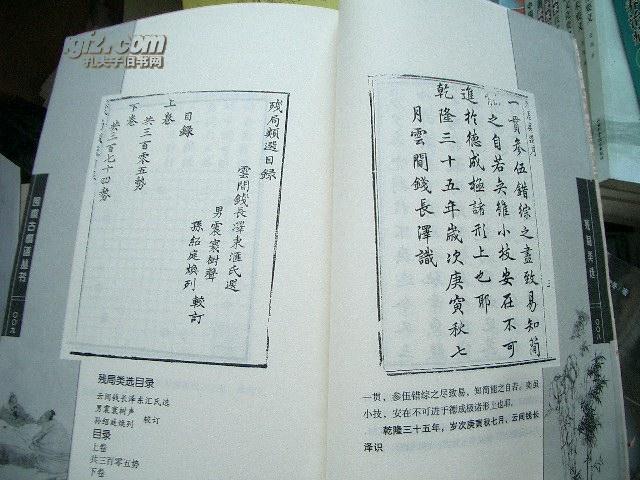 孔夫子旧书网
残局類選目录
雲間錢長澤東滙氏選
男震寰樹聲
孫紹庭煥列 較訂
目录
上卷
共三百零五勢
下卷
共二百七十四勢
残局类选目录
云间钱长泽东汇氏选
男震寰树声
孙绍庭焕列 较订
目录
上卷
共三百零五势
下卷
围棋古棋谱丛书
一貫參伍錯綜之盡致易知簡
之自若矣雖小技安在不可
進於德成極諸形上也耶
乾隆三十五年歲次庚寅秋七
月雲間錢長澤識
一贯，参伍错综之尽致易，知简能之自若。奕虽
小技，安在不可进于德成极诸形上也耶。
乾隆三十五年，岁次庚寅秋七月，云间钱长
泽识
残局类选